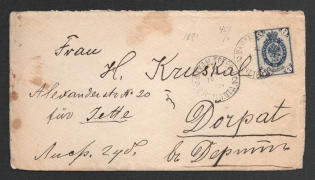 1891
Frau
H. Kruskal
Alexanderstr No 20
für Jette
Dorpat
Лифл. губ.
въ Дерптъ